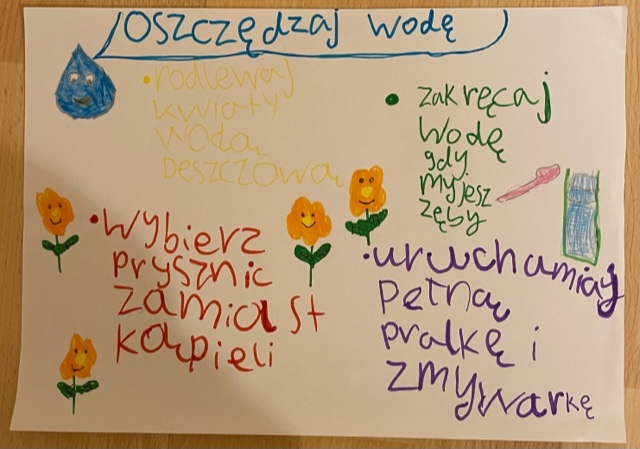 OSZCZĘDZAJ WODĘ
• Podlewaj
kwiaty
wodą
DESZCZOWĄ
• zakręcaj
Wodę
gdy
myjesz
zęby
• Wybierz
prysznic
zamiast
kąpieli
• uruchamiaj
pełną
pralkę i
zmywarkę